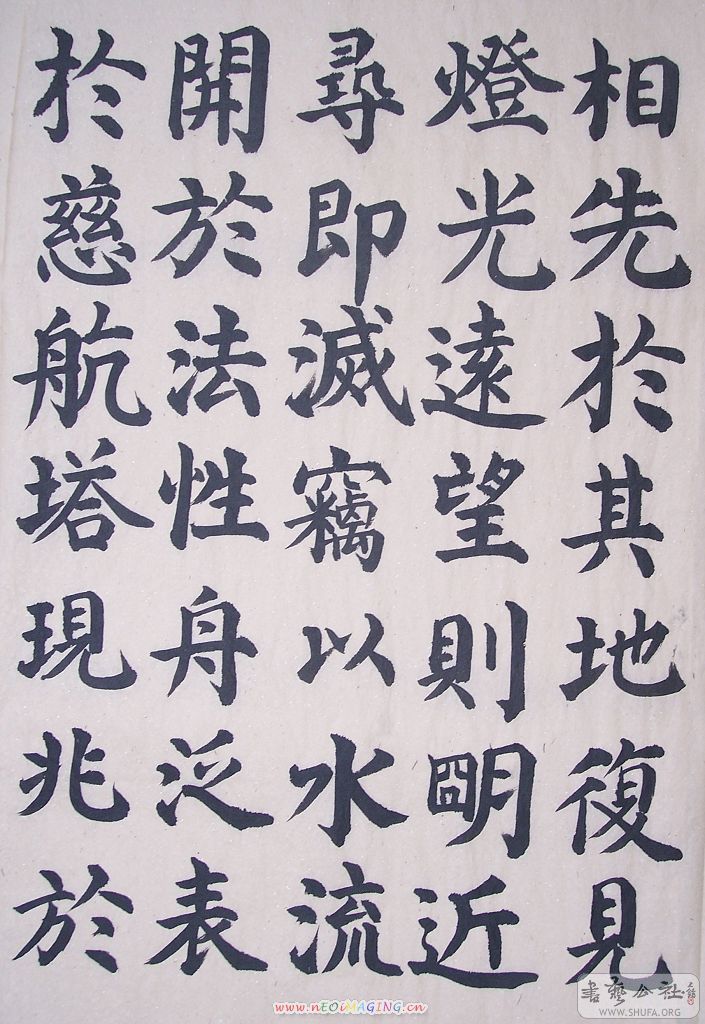 相先於其地復見
燈光遠望則明近
尋即滅竊以水流
開於法性舟泛表
於慈航塔現兆於
書艺公社
WWW.SHUFA.ORG
www.nEOiMAGING.cn